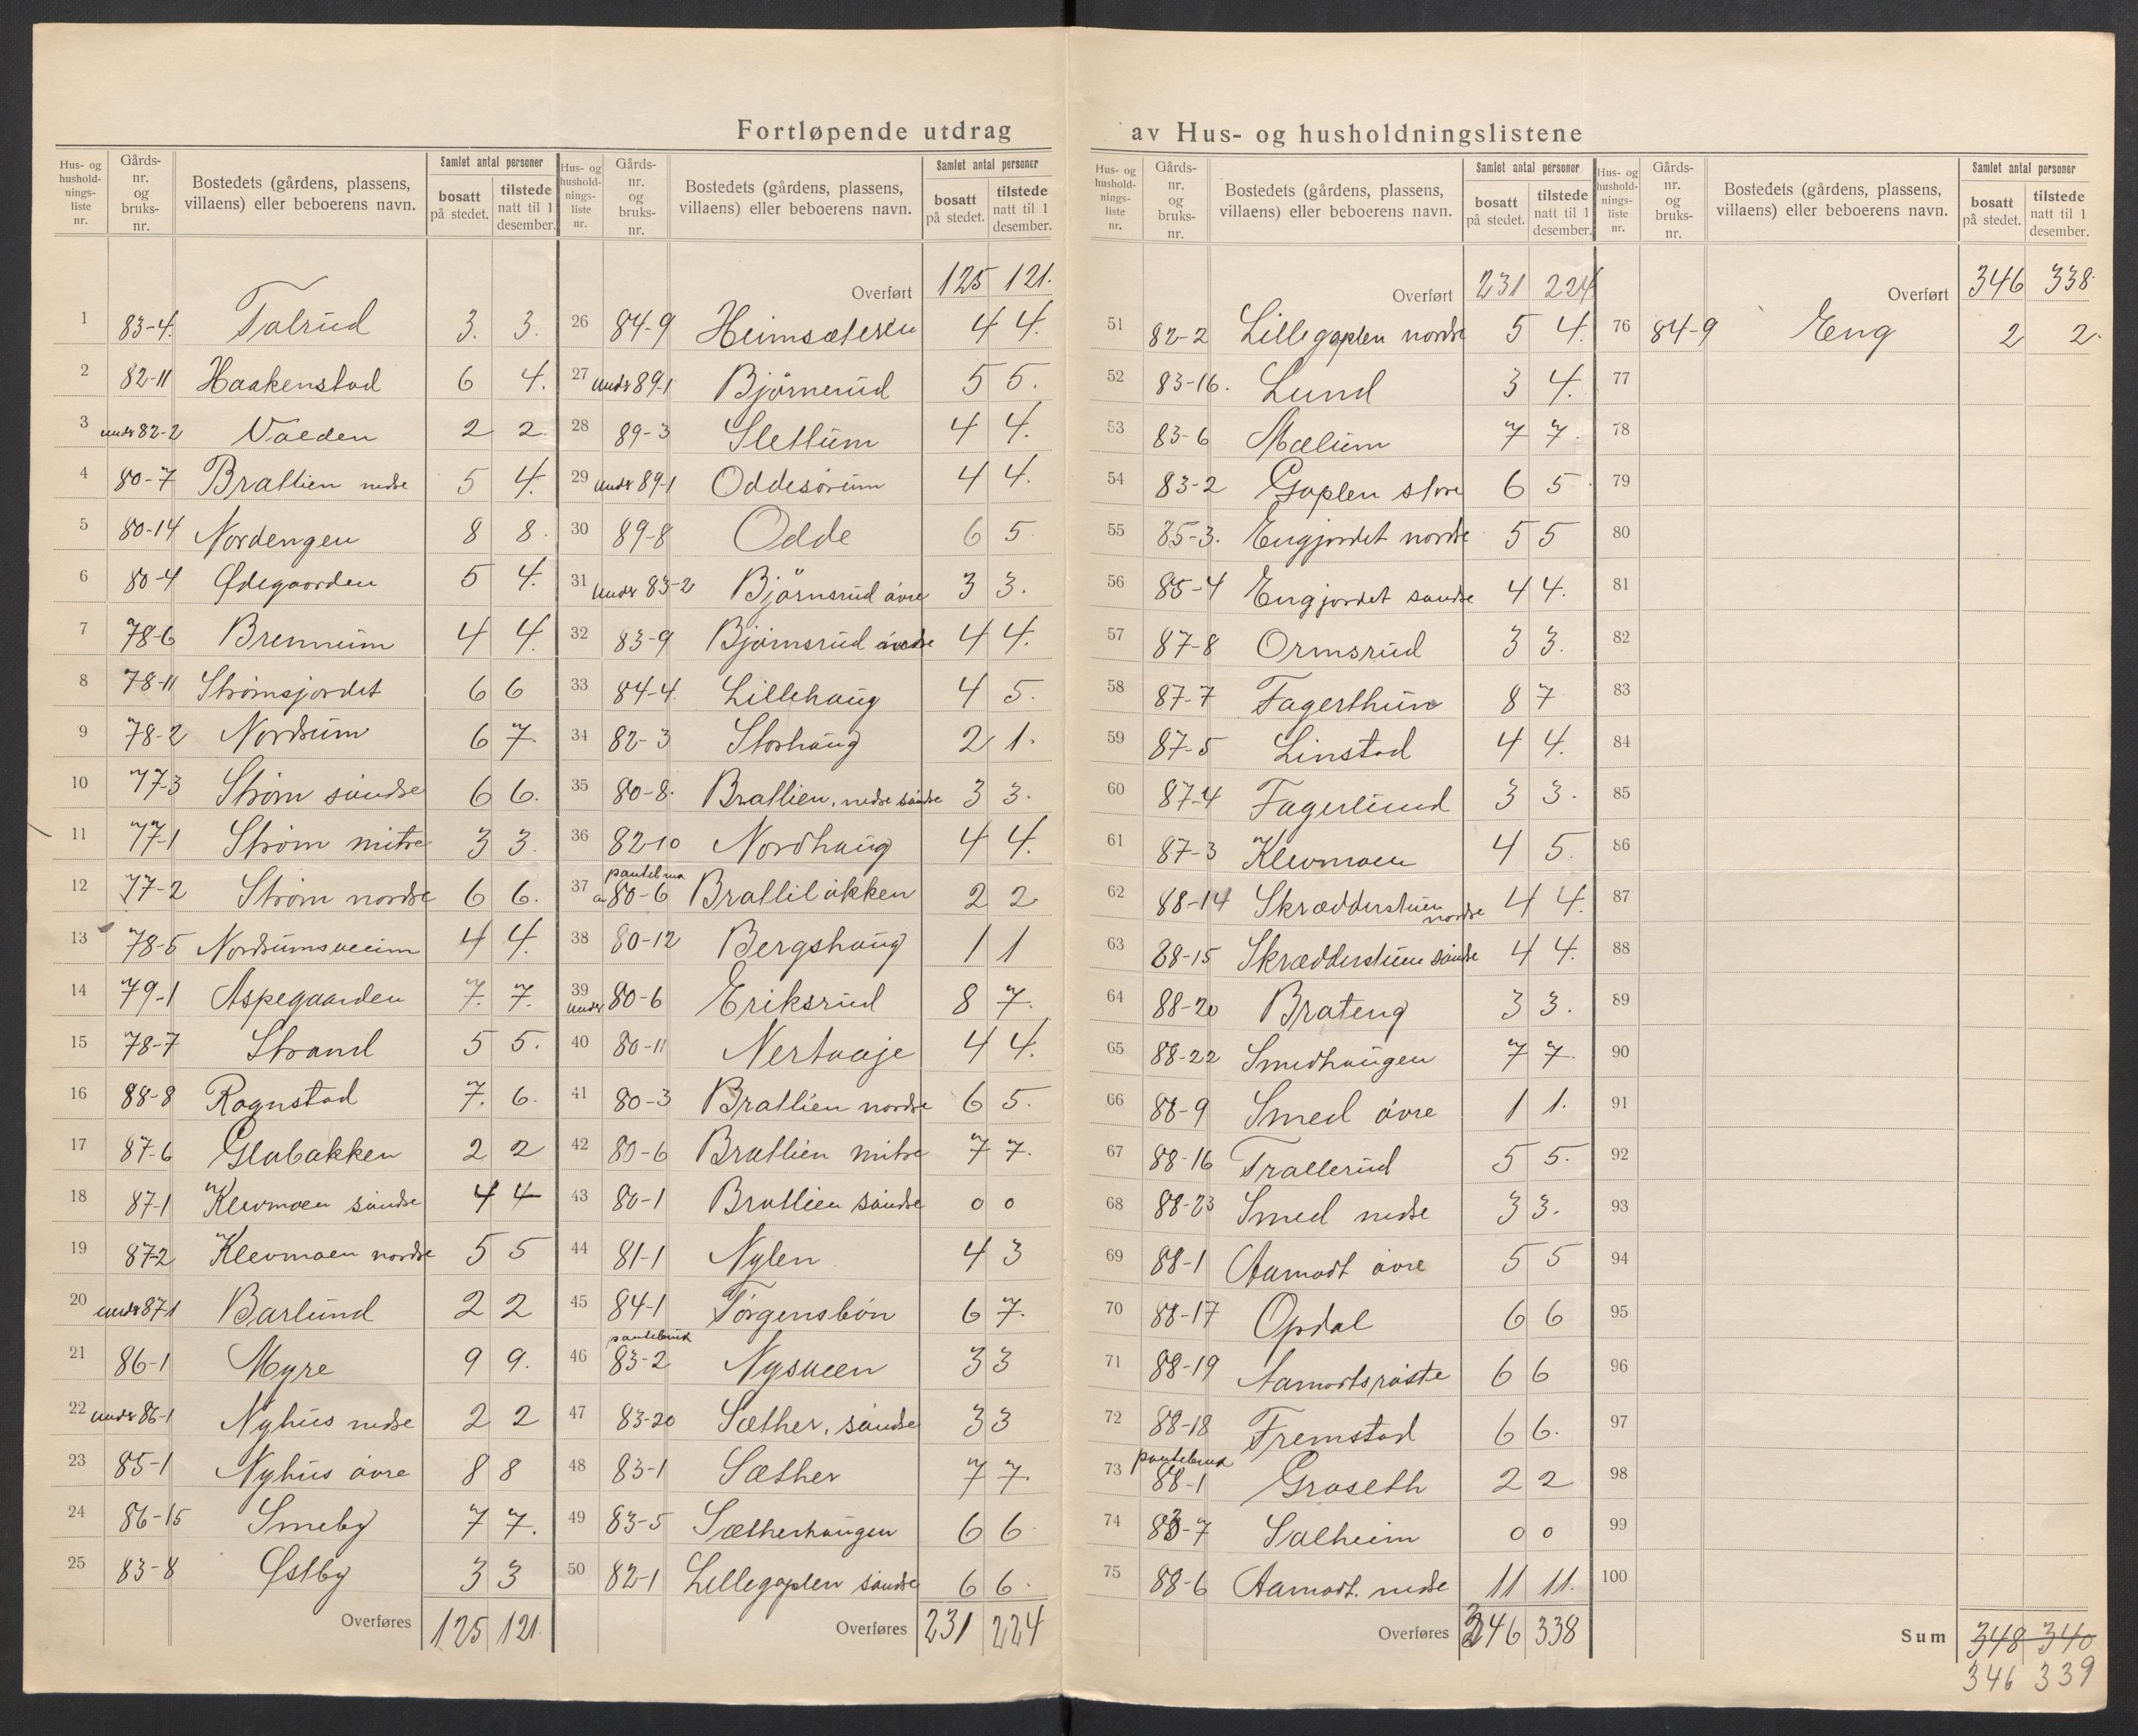 Fortløpende utdrag av Hus- og husholdningslistene
Hus- og hushold-nings-liste nr. Gårds-nr. og bruks-nr. Bostedets (gårdens, plassens, villaens) eller beboerens navn. Samlet antal personer bosatt på stedet. tilstede natt til 1 desember.
1 83-4. Talrud 3. 3.
2 82-11 Haakenstad 6 4.
3 under 82-2 Volden 2 2
4 80-7 Bratlien nedre 5 4.
5 80-14 Nordengen 8 8.
6 80-4 Ødegaarden 5 4.
7 78-6 Brennum 4 4.
8 78-11 Strømsjordet 6 6
9 78-2 Nordsum 6 7.
10 77-3 Strøm søndre 6 6.
11 77-1 Strøm mitre 3 3.
12 77-2 Strøm nordre 6 6.
13 78-5 Nordsumsveen 4 4.
14 79-1 Aspegaarden 7. 7.
15 78-7 Strand 5 5.
16 88-8 Rognstad 7. 6.
17 87-6 Glabakken 2 2
18 87-1 Klevmoen søndre 4 4
19 87-2 Klevmoen nordre 5 5
20 under 87-1 Barlund 2 2
21 86-1 Myre 9 9.
22 under 86-1 Nyhus nedre 2 2
23 85-1 Nyhus øvre 8 8
24 86-15 Smeby 7 7.
25 83-8 Østby 3 3
Overføres 125 121.
Hus- og hushold-nings-liste nr. Gårds-nr. og bruks-nr. Bostedets (gårdens, plassens, villaens) eller beboerens navn. Samlet antal personer bosatt på stedet. tilstede natt til 1 desember.
Overført 125 121.
26 84-9 Heimsæteren 4 4.
27 under 89-1 Bjørnerud 5 5.
28 89-3 Slettum 4 4.
29 under 89-1 Oddesørum 4 4.
30 89-8 Odde 6 5.
31 under 83-2 Bjørnsrud øvre 3 3.
32 83-9 Bjørnsrud nedre 4 4.
33 84-4. Lillehaug 4 5.
34 82-3 Storhaug 2 1.
35 80-8. Bratlien, nedre søndre 3 3.
36 82-10 Nordhaug 4 4.
37 80-6 Bratlibakken 2 2
38 80-12 Bergshaug 1 1
39 under 80-6 Eriksrud 8 7.
40 80-11 Nertaaje 4 4.
41 80-3 Bratlien nordre 6 5.
42 80-6 Bratlien mitre 7 7.
43 80-1 Bratlien søndre 0 0
44 81-1 Nylen 4 3
45 84-1 Torgensbøn 6 7.
pantebruk
46 83-2 Nysveen 3 3
47 83-20 Sæther, søndre 3 3
48 83-1 Sæther 7 7.
49 83-5 Sætherhaugen 6 6
50 82-1 Lillegaplen søndre 6 6.
Overføres 231 224
Hus- og hushold-nings-liste nr. Gårds-nr. og bruks-nr. Bostedets (gårdens, plassens, villaens) eller beboerens navn. Samlet antal personer bosatt på stedet. tilstede natt til 1 desember.
Overført 231 224
51 82-2 Lillegaplen nordre 5 4.
52 83-16. Lund 3 4.
53 83-6 Mælum 7 7.
54 83-2 Gaplen store 6 5
55 85-3. Engjordet nordre 5 5
56 85-4 Engjordet søndre 4 4.
57 87-8 Ormsrud 3 3.
58 87-7 Fagerthun 8 7
59 87-5 Linstad 4 4.
60 87-4 Fagerlund 3 3.
61 87-3 Klevmoen 4 5.
62 88-14 Skrædderstuen nordre 4 4.
63 88-15 Skrædderstuen søndre 4 4.
64 88-20 Brateng 3 3.
65 88-22 Smedhaugen 7 7.
66 88-9 Smed øvre 1 1.
67 88-16 Trallerud 5 5.
68 88-23 Smed nedre 3 3.
69 88-1 Aamodt øvre 5 5
70 88-17 Opdal 6 6
71 88-19 Aamodtsrøste 6 6
72 88-18 Fremstad 6 6.
pantebruk
73 88-1 Graseth 2 2
74 83-7 Solheim 0 0
75 88-6 Aamodt. nedre 11 11.
Overføres 346 338
Hus- og hushold-nings-liste nr. Gårds-nr. og bruks-nr. Bostedets (gårdens, plassens, villaens) eller beboerens navn. Samlet antal personer bosatt på stedet. tilstede natt til 1 desember.
Overført 346 338.
76 84-9 Eng 2 2.
77
78
79
80
81
82
83
84
85
86
87
88
89
90
91
92
93
94
95
96
97
98
99
100
Sum 348 340
346 339